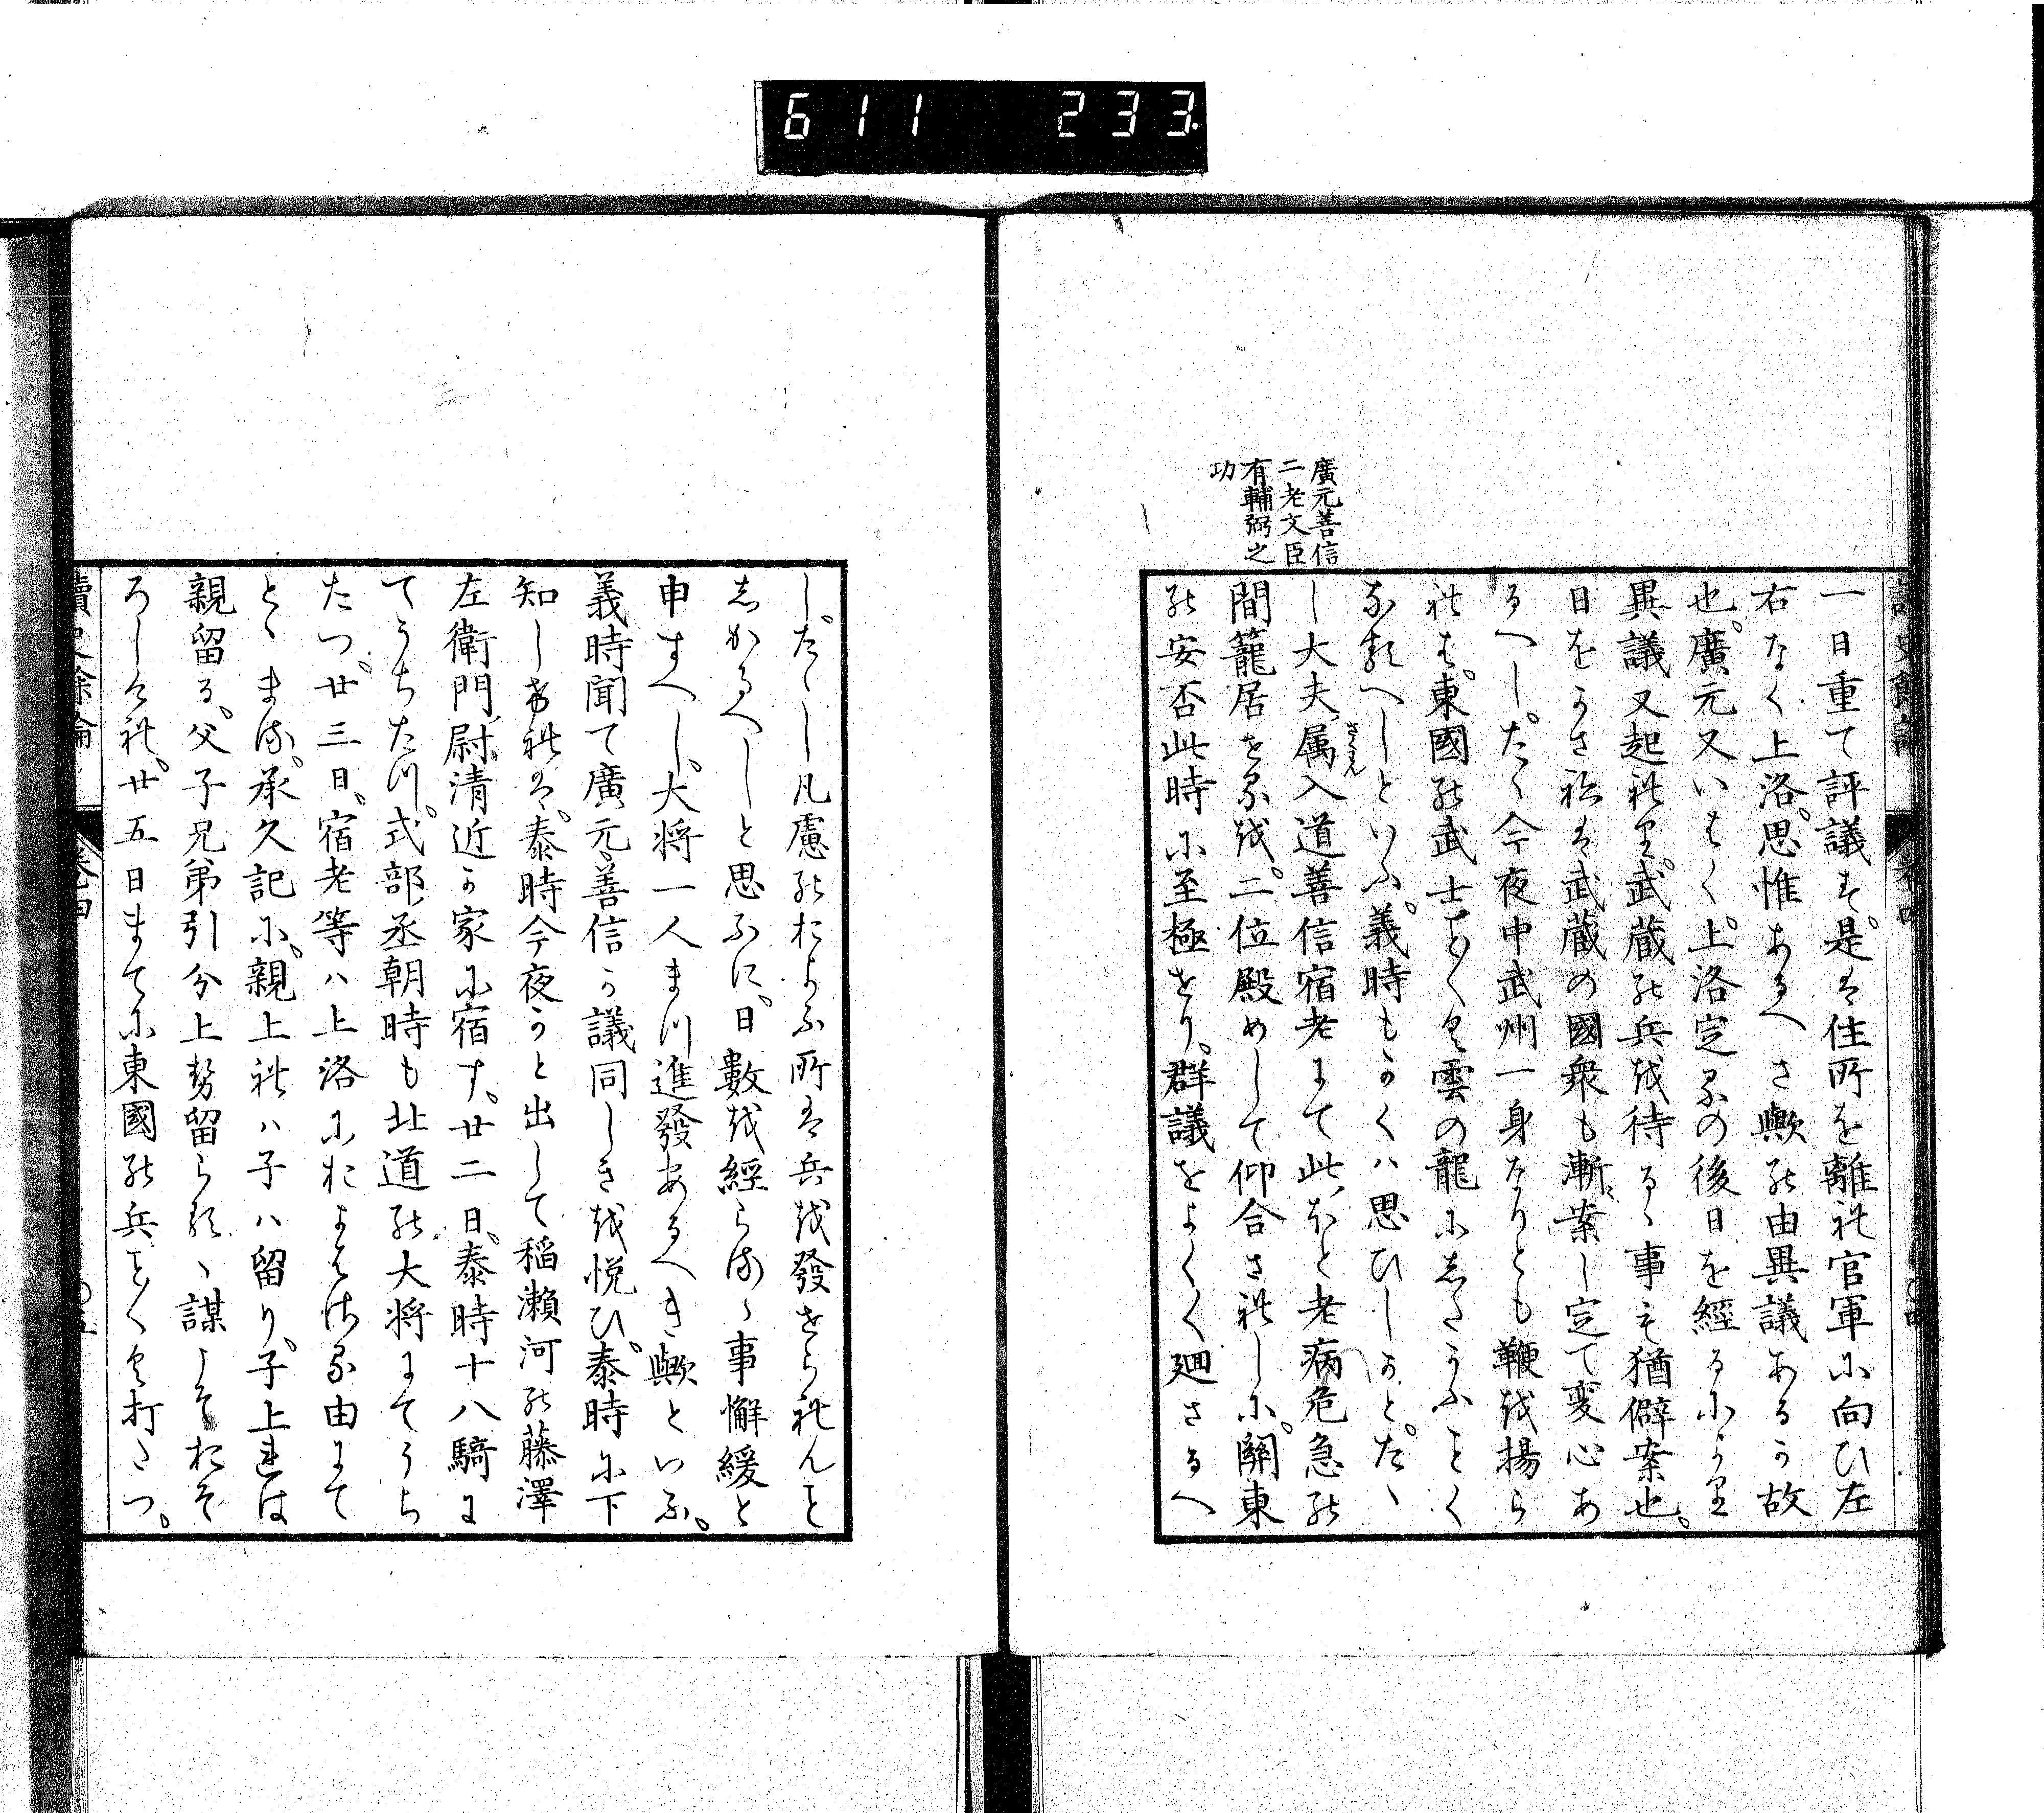 611 233
廣元善信
二老文臣
有輔弼之
功
一日重て評議す。是は住所を離れ官軍に向ひ左
右なく上洛。思惟あるへき歟の由異議あるか故
也。廣元又いはく。上洛定るの後日を經るにより
異議又起れり。武蔵の兵を待るゝ事も猶僻案也。
日をかさねは武蔵の國衆も漸案し定て変心あ
るへし。たゝ今夜中武州一身なりとも鞭を揚ら
れは。東國の武士ことく〳〵雲の龍にしたかふことく
なるへしといふ。義時もかくハ思ひしかと。たゝ
し大夫属入道善信宿老にて此ほと老病危急の
さくわん
間籠居せるを。二位殿めして仰合されしに。關東
の安否此時に至極せり。群議をよく〳〵廻さるへ
し。たゝし凡慮のおよふ所は兵を發せられんと
しかるへしと思ふに、日數を經らるゝ事懈緩と
申すへし、大将一人まつ進發あるへき歟といふ。
義時聞て廣元善信か議同しきを悦ひ。泰時に下
知しけれは、泰時今夜かと出して稲瀬河の藤澤
左衛門尉清近か家に宿す。廿二日、泰時十八騎に
てうちたつ。式部丞朝時も北道の大将にてうち
たつ。廿三日、宿老等ハ上洛におよはさる由にて
とゝまる。承久記に。親上れハ子ハ留り。子上れは
親留る。父子兄弟引分上せ留らるゝ謀こそおそ
ろしけれ。廿五日まてに東國の兵ことく〳〵打たつ。
讀史餘論
卷四